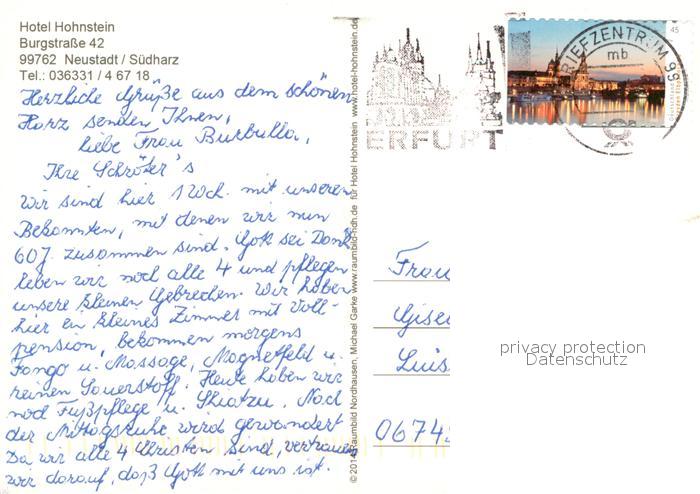 Hotel Hohnstein
Burgstraße 42
99762 Neustadt / Südharz
Tel.: 036331 / 4 67 18
Herzliche Grüße aus dem schönen
Harz senden Ihnen,
liebe Frau Burbulla,
Ihre Schröter's
Wir sind hier 1 Woch. mit unseren
Bekannten, mit denen wir nun
60 J. zusammen sind. Gott sei Dank
leben wir noch alle 4 und pflegen
unsere kleinen Gebrechen. Wir haben
hier ein kleines Zimmer mit Voll-
pension, bekommen morgens
Fango u. Massage, Magnetfeld u.
reinen Sauerstoff. Heute haben wir
noch Fußpflege u. Shiatzu. Nach
der Mittagsruhe wird gewandert
Da wir alle 4 Christen sind, vertrauen
wir darauf, daß Gott mit uns ist.
© 2014 Raumbild Nordhausen, Michael Garke www.raumbild-ndh.de für Hotel Hohnstein www.hotel-hohnstein.de
ERFURT
BRIEFZENTRUM 99
mb
45
Frau
Gise
Luis
0674
privacy protection
Datenschutz